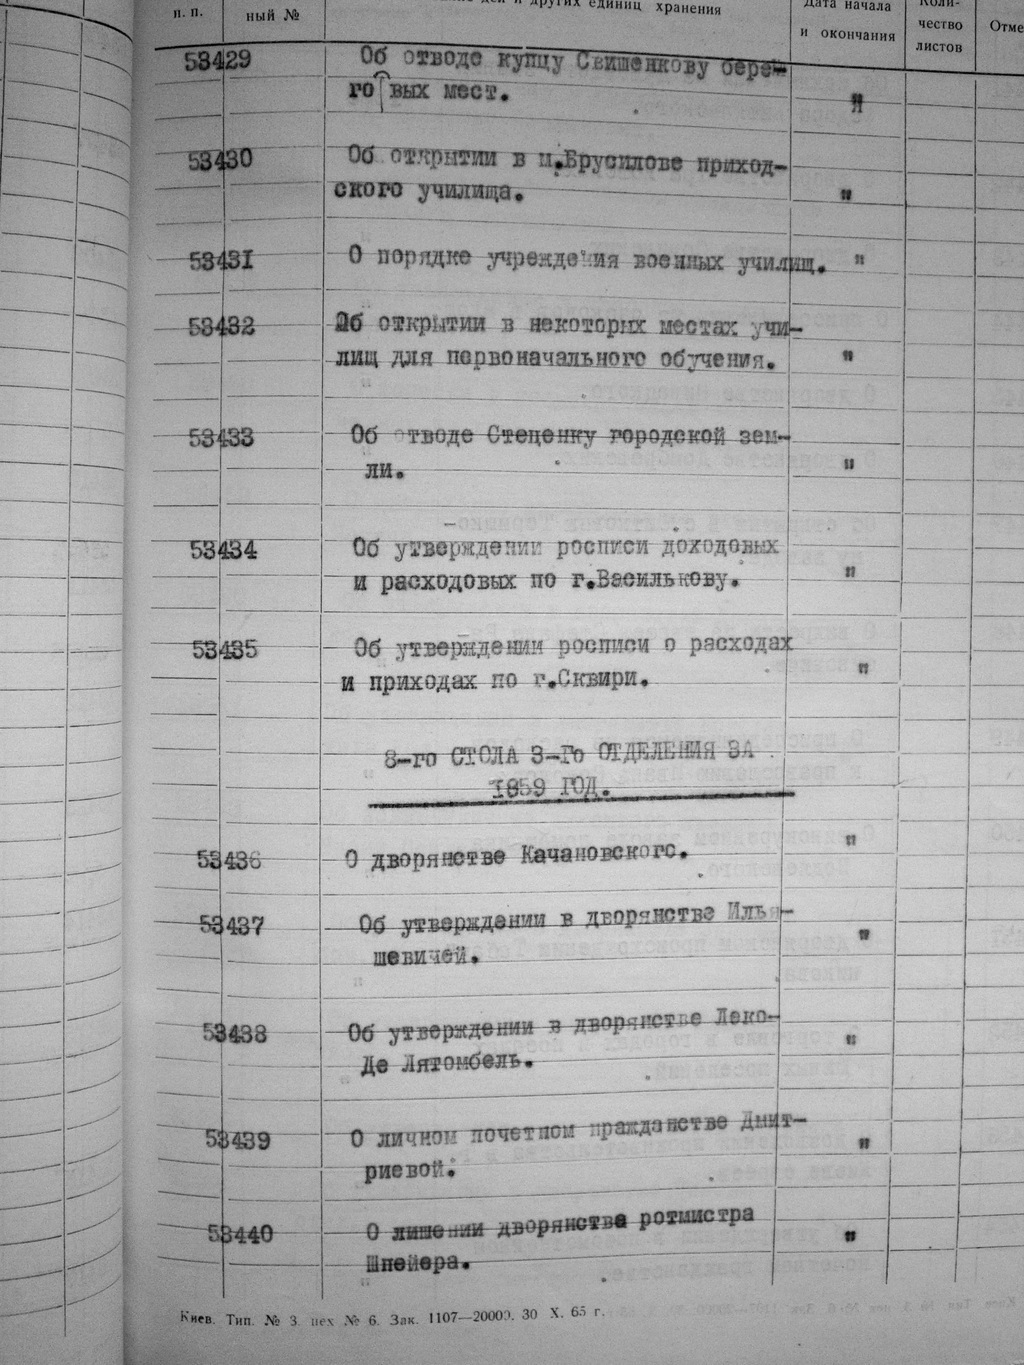 п. п. ный № дел и других единиц хранения Дата начала и окончания Коли-чество листов Отме
53429 Об отводе купцу Свишенкову бере-
го вых мест. "
53430 Об открытии в м.Брусилове приход-
ского училища. "
53431 О порядке учреждения военных училищ. "
53432 Об открытии в некоторых местах учи-
лищ для первоначального обучения. "
53433 Об отводе Стеценку городской зем-
ли. "
53434 Об утверждении росписи доходовых
и расходовых по г.Василькову. "
53435 Об утверждении росписи о расходах
и приходах по г.Сквири. "
3-го СТОЛА 3-Го ОТДЕЛЕНИЯ ЗА
1859 ГОД.
53436 О дворянстве Качановского. "
53437 Об утверждении в дворянстве Илья-
шевичей. "
53438 Об утверждении в дворянстве Леко-
Де Лятомбель. "
53439 О личном почетном гражданстве Дмит-
риевой. "
53440 О лишении дворянства ротмистра
Шнейера. "
Киев. Тип. № 3. цех № 6. Зак. 1107—20000. 30 X. 65 г.